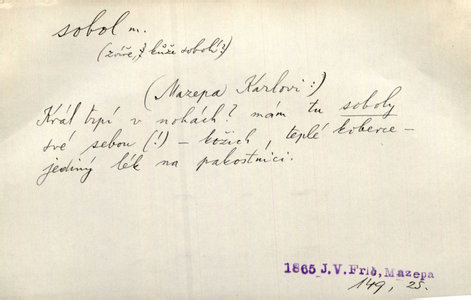 sobol m.
(zvíře, ? kůže sobolí?)
(Mazepa Karlovi:)
Král trpí v nohách? mám tu soboly
své sebou (!) – kožich, teplé koberce –
jediný lék na pakostnici.
1865 J.V.Frič, Mazepa
149, 25.